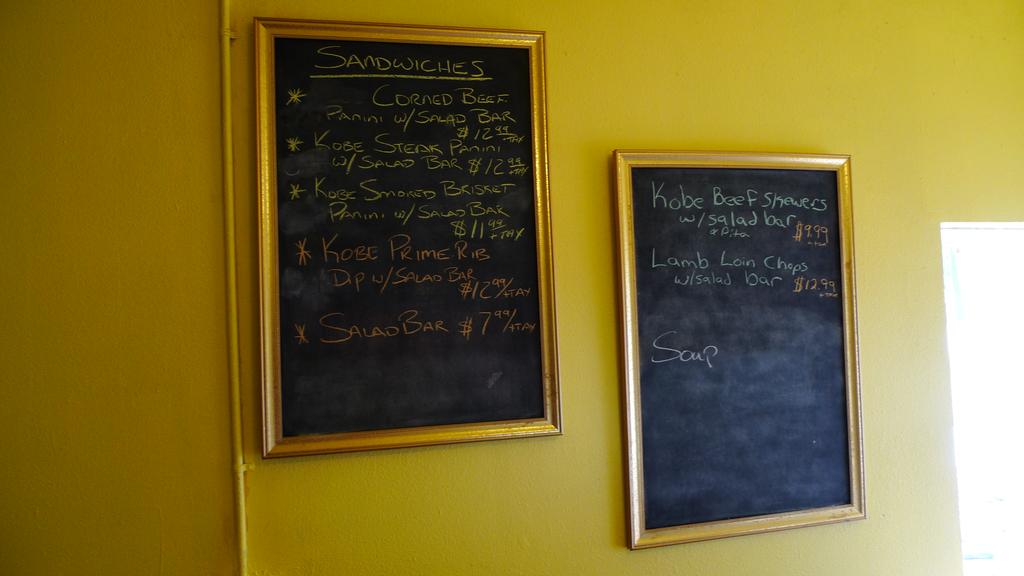 SANDWICHES
* CORNED BEEF
PANINI W/SALAD BAR
$12.99 +TAX
* KOBE STEAK PANINI
W/SALAD BAR $12.99 +TAX
* KOBE SMOKED BRISKET
PANINI W/SALAD BAR
$11.99 +TAX
* KOBE PRIME RIB
DIP W/SALAD BAR
$12.99/+TAX
* SALAD BAR $7.99/+TAX
Kobe Beef Skewers
w/salad bar
& Pita $9.99
+tax
Lamb Loin Chops
w/salad bar $12.99
+tax
Soup